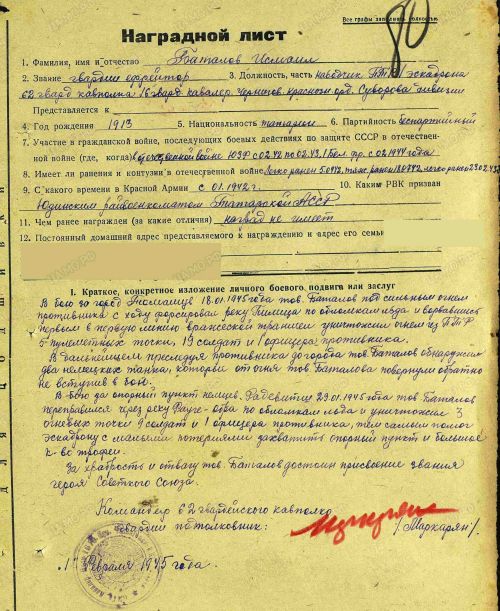 Все графы заполнять полностью
80
Наградной лист
1. Фамилия, имя и отчество Баталов Исмаил
2. Звание гвардии ефрейтор 3. Должность, часть наводчик ПТР 1 эскадрона
62 гвард. кавполка 16 гвард. кавалер. Чернигов. краснозн. орд. Суворова дивизии
Представляется к
4. Год рождения 1913 5. Национальность татарин 6. Партийность беспартийный
7. Участие в гражданской войне, последующих боевых действиях по защите СССР в отечествен-
ной войне (где, когда) в отечественной войне ЮЗФ с 02.42 по 02.43, 1 Бел. фр. с 02.1944 года
8. Имеет ли ранения и контузии в отечественной войне легко ранен
9. С какого времени в Красной Армии с 01.1942 г. 10. Каким РВК призван
Юдинским райвоенкоматом Татарской АССР
11. Чем ранее награжден (за какие отличия) наград не имеет
12. Постоянный домашний адрес представляемого к награждению и адрес его семьи
I. Краткое, конкретное изложение личного боевого подвига или заслуг
В бою за город Томашув 18.01.1945 года тов. Баталов под сильным огнем
противника с ходу форсировал реку Пилица по обломкам льда и ворвавшись
первым в первую линию вражеской траншеи уничтожил огнем из ПТР
5 пулеметных точки, 19 солдат и 1 офицера противника.
В дальнейшем преследуя противника до города тов. Баталов обнаружил
два немецких танка, которые от огня тов. Баталова повернули обратно
не вступив в бой.
В бою за опорный пункт немцев 29.01.1945 года тов. Баталов
переправился через реку по обломкам льда и уничтожил 3
огневых точки 9 солдат и 1 офицера противника, тем самым помог
эскадрону с малыми потерями захватить опорный пункт и большое
к-во трофеи.
За храбрость и отвагу тов. Баталов достоин присвоение звания
героя Советского Союза.
Командир 62 гвардейского кавполка
гвардии подполковник: /Маркарян/.
"1" Февраля 1945 года.